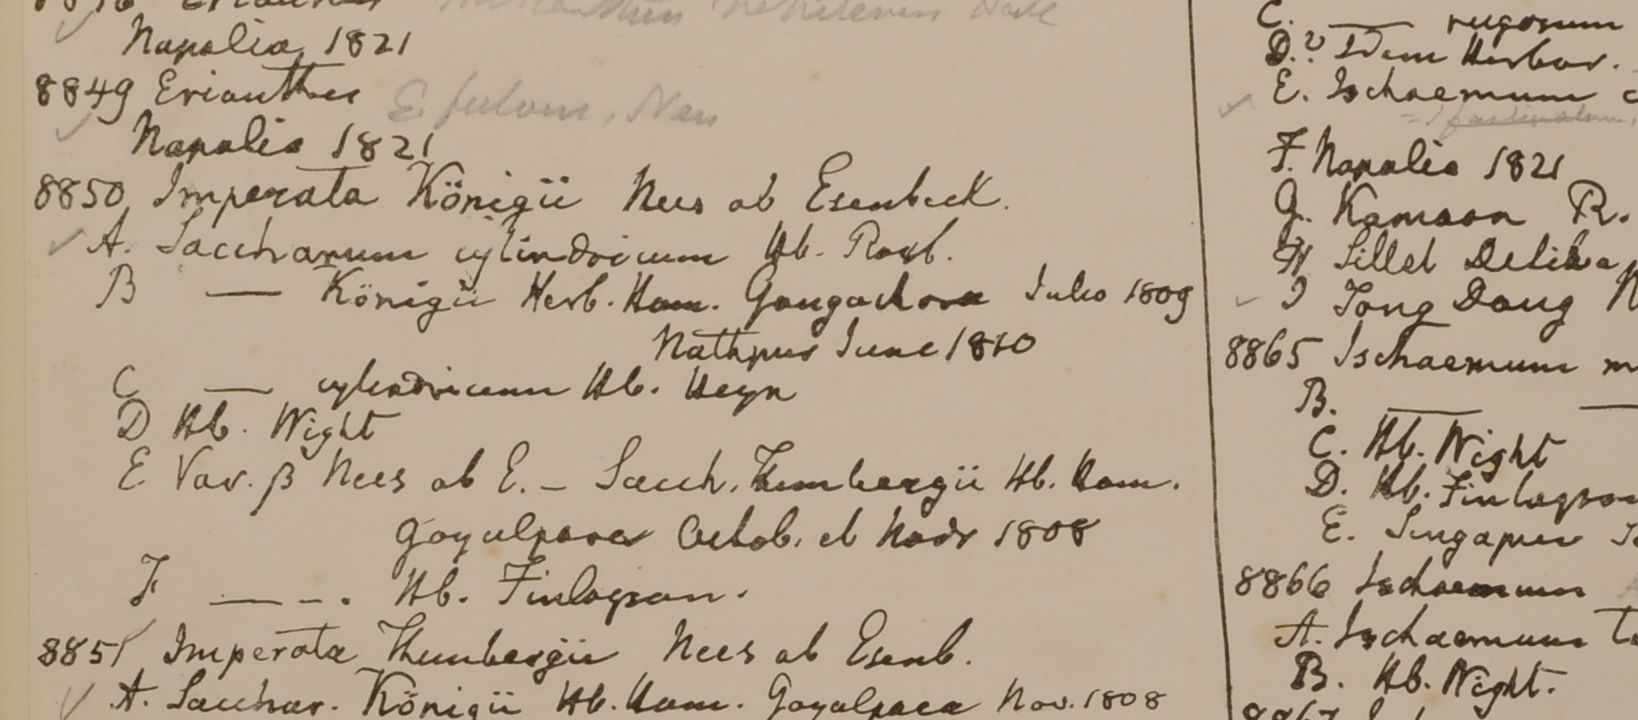 Napalia 1821
8849 Erianthus E fulvus, Nees
Napalia 1821
8850 Imperata Königii Nees ab Esenbeck.
A. Saccharum cylindricum Hb. Roxb.
B — Königii Herb. Ham. Gongachora Julio 1809
Nathpur June 1810
C — cylindricum Hb. Heyn
D Hb. Wight
E Var. β Nees ab E. – Sacch. Thunbergii Hb. Ham.
Goyalpara Octob. et Novr 1808
F — – – . Hb. Finlayson.
8851 Imperata Thunbergii Nees ab Esenb.
A. Sacchar. Königii Hb. Ham. Goyalpara Nov. 1808
C. — rugosum
D.? Idem Herbar.
E. Ischaemum
F. Napalia 1821
G. Kamaon R.
H Sillet Delika
I Tong Dong
8865 Ischaemum m
B. — —
C. Hb. Wight
D. Hb. Finlayson
E. Singapur
8866 Ischaemum
A. Ischaemum
B. Hb. Wight.